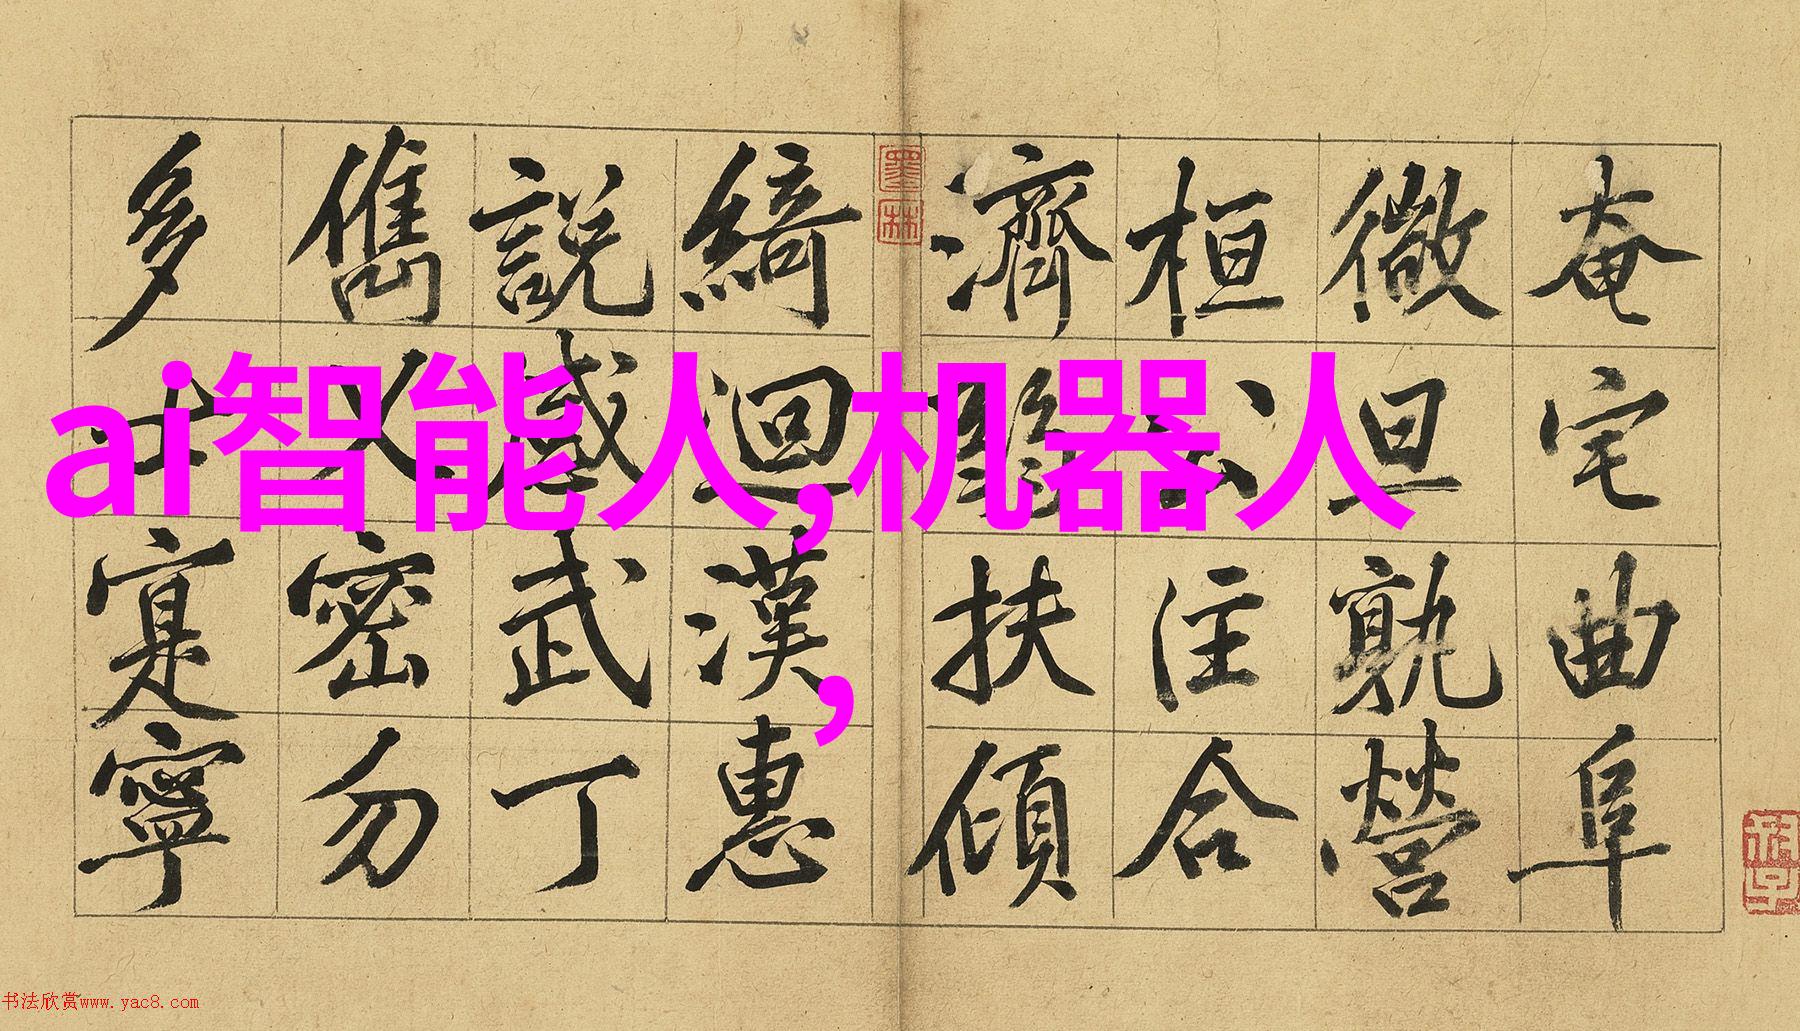 奄宅曲阜
微旦孰營
桓公合
濟弱扶傾
綺迴漢惠
說感武丁
儁乂密勿
多士寔寧
墨林
ai智能人,机器人
,
书法欣赏www.yac8.com